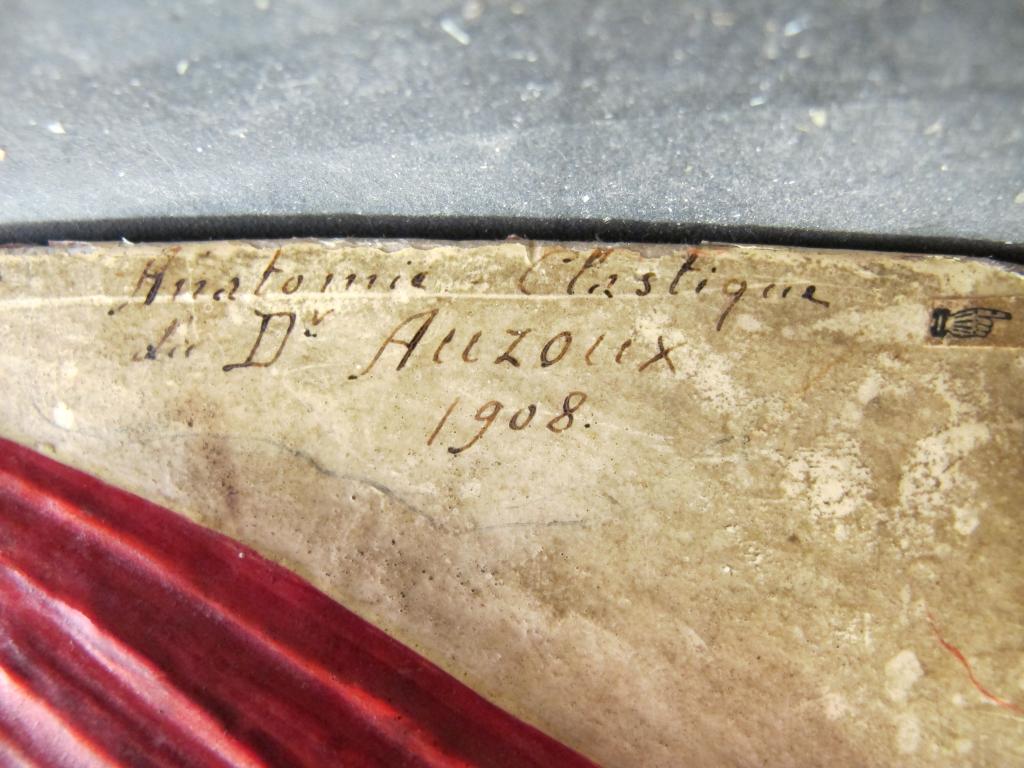 Anatomie Clastique
du Dr Auzoux
1908.